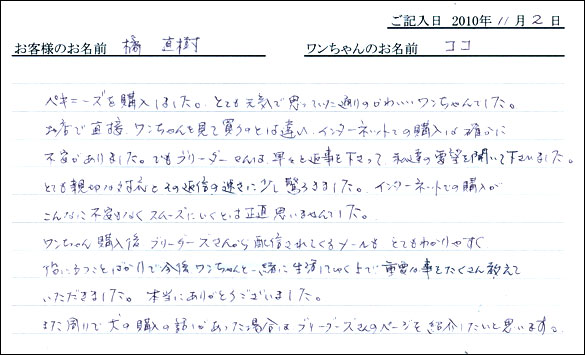 ご記入日 2010年 11月 2日
お客様のお名前 橘 直樹 ワンちゃんのお名前 ココ
ペキニーズを購入しました。とても元気で思っていた通りのかわいいワンちゃんでした。
お店で直接、ワンちゃんを見て買うのとは違い、インターネットでの購入は確かに
不安がありました。でもブリーダーさんは、早々と返事を下さって 私達の要望を聞いて下さいました。
とても親切な対応と その返信の速さに少し驚ろきました。インターネットでの購入が
こんなに不安もなく スムーズにいくとは正直 思いませんでした。
ワンちゃん購入後 ブリーダーズさんから配信されてくるメールも とてもわかりやすく
役にたつことばかりで今後 ワンちゃんと一緒に生活していく上で重要な事をたくさん教えて
いただきました。本当にありがとうございました。
また周りで犬の購入の話しがあった場合は ブリーダーズさんのページを紹介したいと思います。